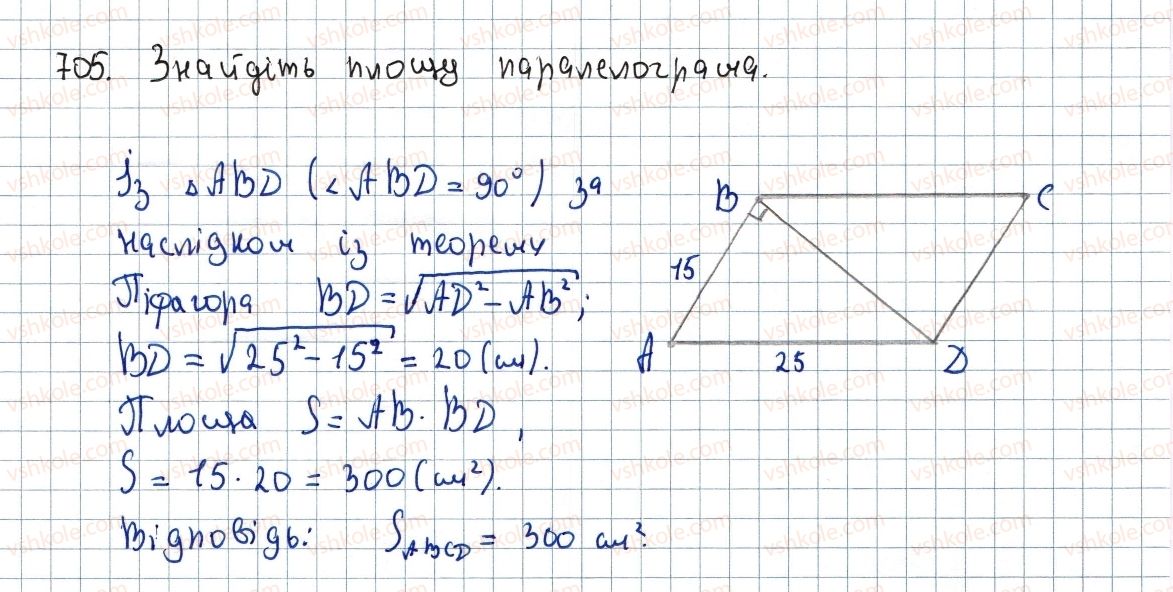 705. Знайдіть площу паралелограма.
Із △ABD (<ABD = 90°) за
наслідком із теореми
Піфагора BD = √AD² - AB²;
BD = √25² - 15² = 20 (см).
Площа S = AB · BD,
S = 15 · 20 = 300 (см²).
Відповідь: S ABCD = 300 см².
B C
15
A 25 D
vshkole.com